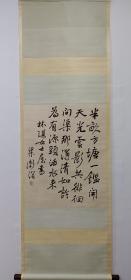 半畝方塘一鑑開
天光雲影共徘徊
問渠那得清如許
為有源頭活水來
林 女士
梁